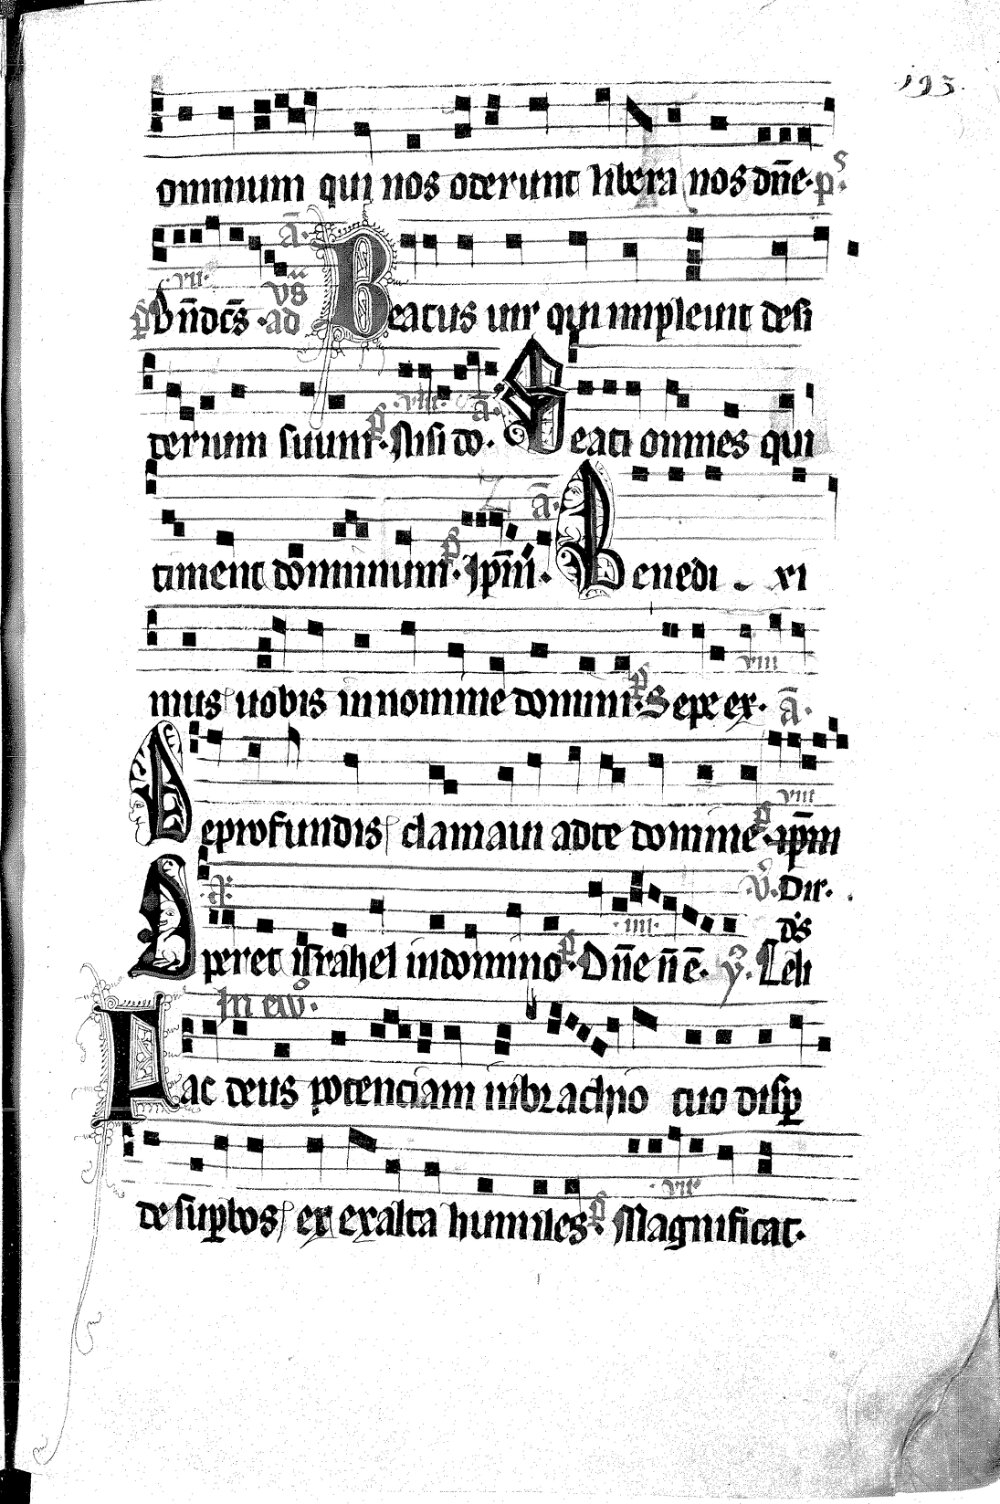 193.
omnium qui nos oderunt libera nos dn̄e. p̄s.
vii. ā.
ps. b̄n̄dc̄s. ad vs̄ Beatus uir qui impleuit desi
viii. ā.
derium suum. ps. Nisi do. Beati omnes qui
ā.
timent dōminum. ps. Ip̄m̄. Benedi xi
viii
mus uobis in nomine domini. ps. Sepe ex. ā.
viii
De profundis clamaui ad te domine. ps. ip̄m
ā. iiii. v̊. Dir. d̄s
Speret israhel in domino. ps. Dn̄e n̄ ē. v̊. Leti
In euº.
Fac deus potenciam in brachio tuo disp̱
vii
de sup̱bos et exalta humiles. ps. Magnificat.